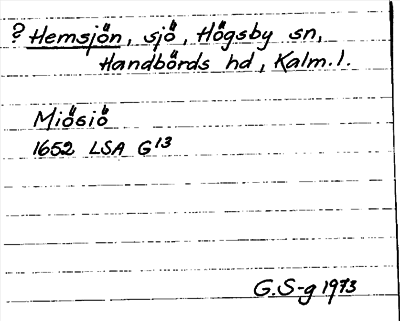 ? Hemsjön, sjö, Högsby sn,
Handbörds hd, Kalm. l.
Miösiö
1652 LSA G13
G.S-g 1973